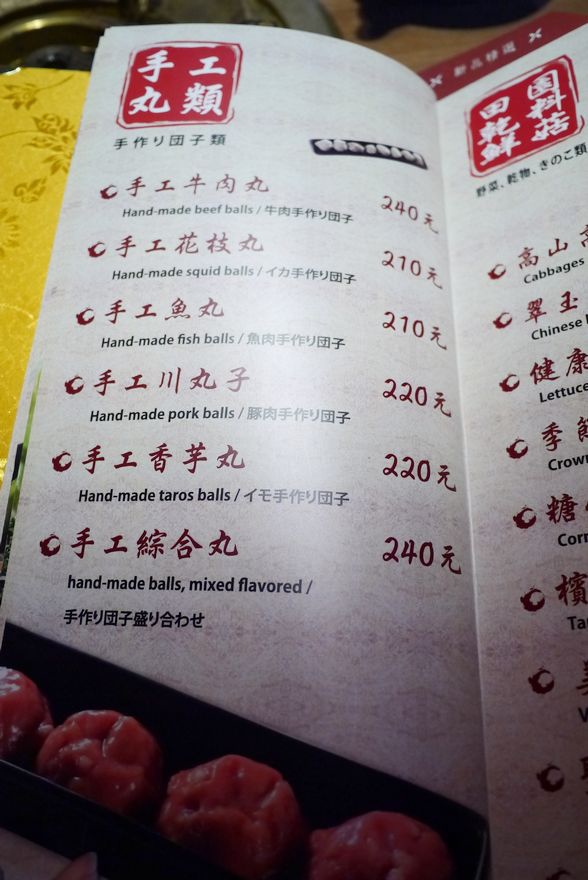 手工
丸類
手作り団子類
手工牛肉丸 240元
Hand-made beef balls / 牛肉手作り団子
手工花枝丸 210元
Hand-made squid balls / イカ手作り団子
手工魚丸 210元
Hand-made fish balls / 魚肉手作り団子
手工川丸子 220元
Hand-made pork balls / 豚肉手作り団子
手工香芋丸 220元
Hand-made taros balls / イモ手作り団子
手工綜合丸 240元
hand-made balls, mixed flavored /
手作り団子盛り合わせ
新品精選
田園
乾科
鮮菇
野菜、乾物、きのこ類
高山
Cabbages
翠玉
Chinese
健康
Lettuce
季節
Crown
糖
Corn